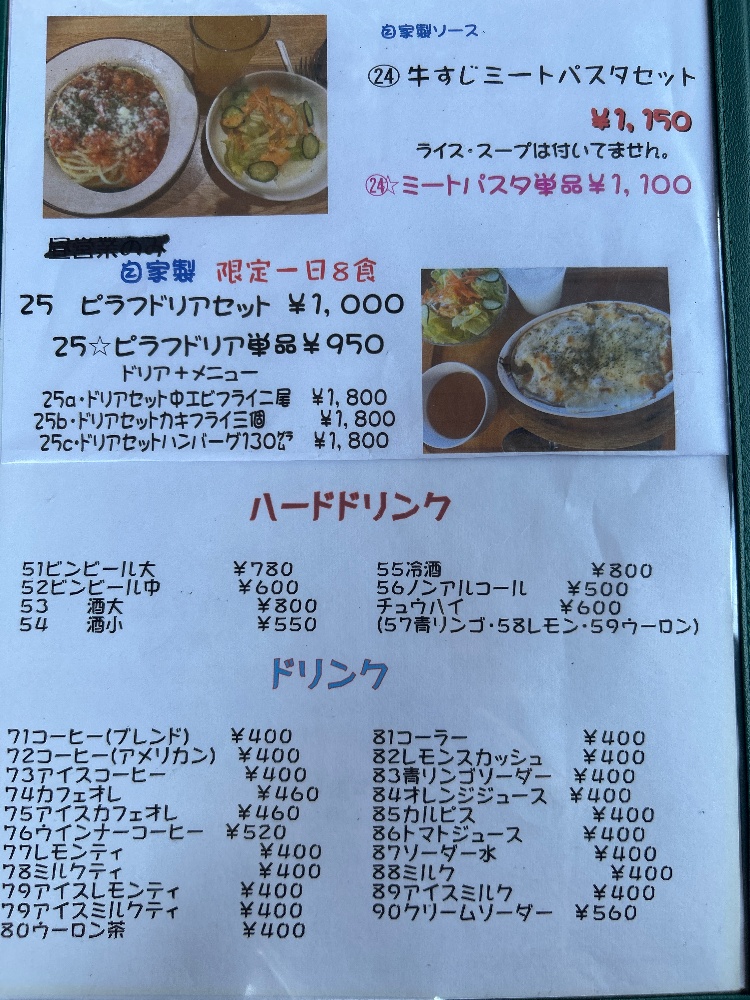 自家製ソース
㉔ 牛すじミートパスタセット
¥1,150
ライス・スープは付いてません。
㉔☆ミートパスタ単品¥1,100
昼営業のみ
自家製 限定一日8食
25 ピラフドリアセット ¥1,000
25☆ピラフドリア単品¥950
ドリア+メニュー
25a・ドリアセット中エビフライ二尾 ¥1,800
25b・ドリアセットカキフライ三個 ¥1,800
25c・ドリアセットハンバーグ130㌘ ¥1,800
ハードドリンク
51ビンビール大 ¥780
52ビンビール中 ¥600
53 酒大 ¥800
54 酒小 ¥550
55冷酒 ¥800
56ノンアルコール ¥500
チュウハイ ¥600
(57青リンゴ・58レモン・59ウーロン)
ドリンク
71コーヒー(ブレンド) ¥400
72コーヒー(アメリカン) ¥400
73アイスコーヒー ¥400
74カフェオレ ¥460
75アイスカフェオレ ¥460
76ウインナーコーヒー ¥520
77レモンティ ¥400
78ミルクティ ¥400
79アイスレモンティ ¥400
79アイスミルクティ ¥400
80ウーロン茶 ¥400
81コーラー ¥400
82レモンスカッシュ ¥400
83青リンゴソーダー ¥400
84オレンジジュース ¥400
85カルピス ¥400
86トマトジュース ¥400
87ソーダー水 ¥400
88ミルク ¥400
89アイスミルク ¥400
90クリームソーダー ¥560